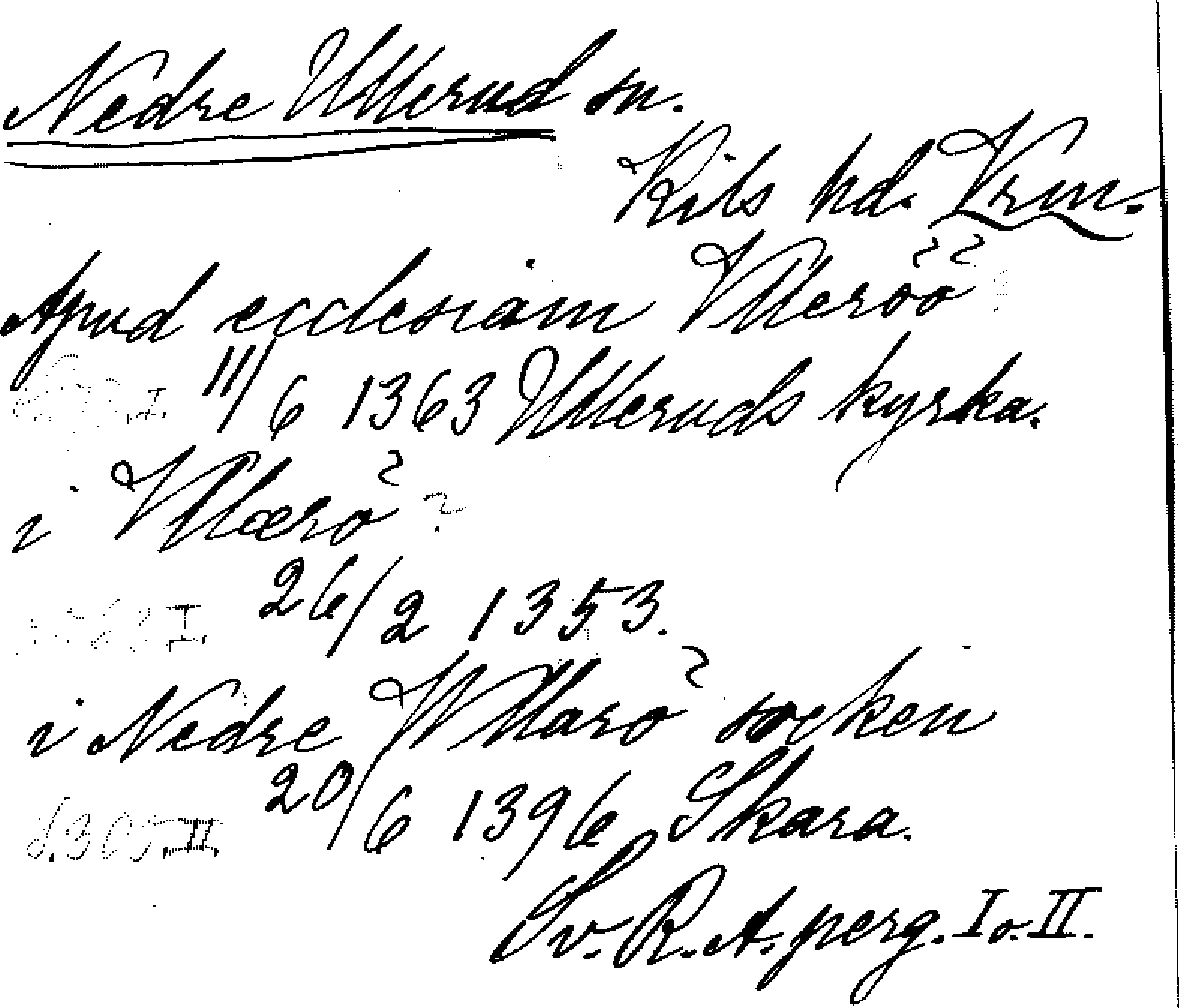 Nedre Ullerud sn.
Kils hd. Vrm.
Apud ecclesiam Vlleröö
11/6 1363 Ulleruds kyrka.
i Vllærö
26/2 1353.
I.
i Nedre Wllarö socken
20/6 1396 Skara.
s. 305 II.
Sv. R. A. perg. I o. II.